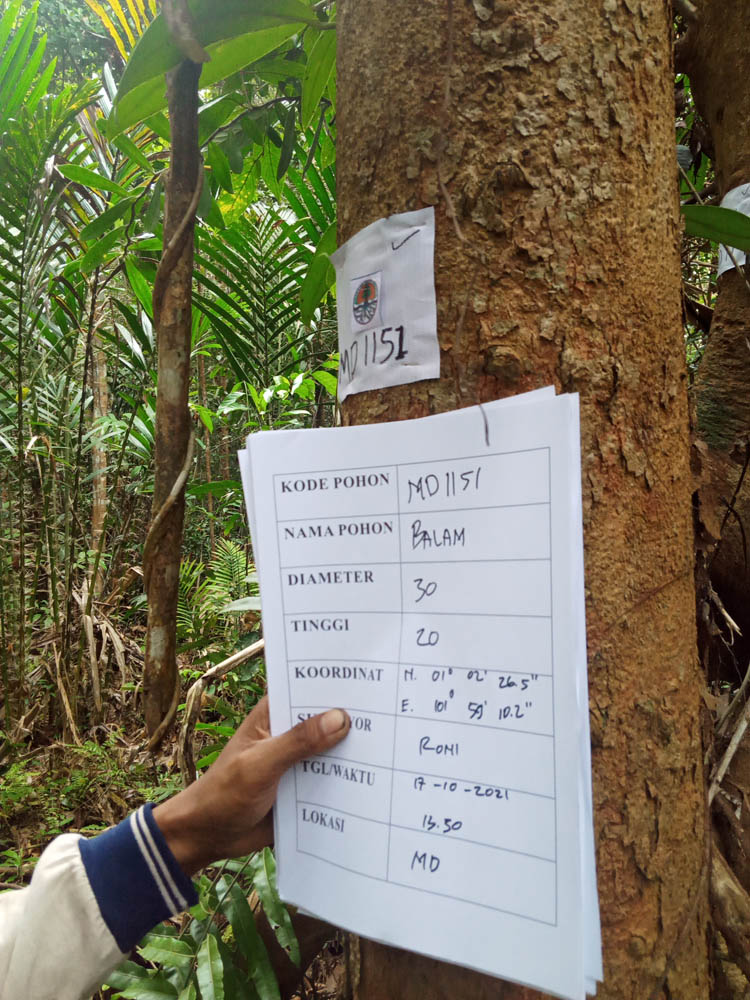 MD1151
KODE POHON MD1151
NAMA POHON BALAM
DIAMETER 30
TINGGI 20
KOORDINAT N. 01° 02' 26.5"
E. 101° 59' 10.2"
RONI
TGL/WAKTU 17-10-2021
13.50
LOKASI MD